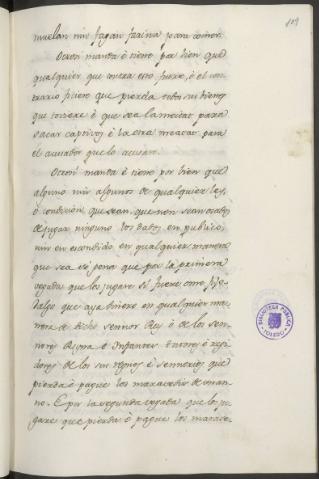 109
muelan nin fagan farina para comer.
Otrosi manda è tiene por bien que
qualquier que contra esto fuere, ò el con-
trario ficiere que pierda todos sus bienes
que toviere è que sea la meitat para
sacar captivos è la otra meatat para
el acusador que lo acusare.
Otrosi manda è tiene por bien que
alguno nin algunos de qualquier ley,
ò condicion que sean, que non sean osados
de jugar ninguno los dados en publico,
nin en escondido en qualquier manera
que sea só pena que por la primera
vegada que los jugare si fuere ome fijo-
dalgo que aya dinero en qualquier ma-
nera de dicho sennor Rey ò de los sen-
nores Reyna è Infantes
dores de los sus regnos è sennorios que
pierda è pague los maravedis
no. E por la segunda vegada que lo ju-
gare que pierda è pague los marave-
BIBLIOTECA PUBLICA
TOLEDO